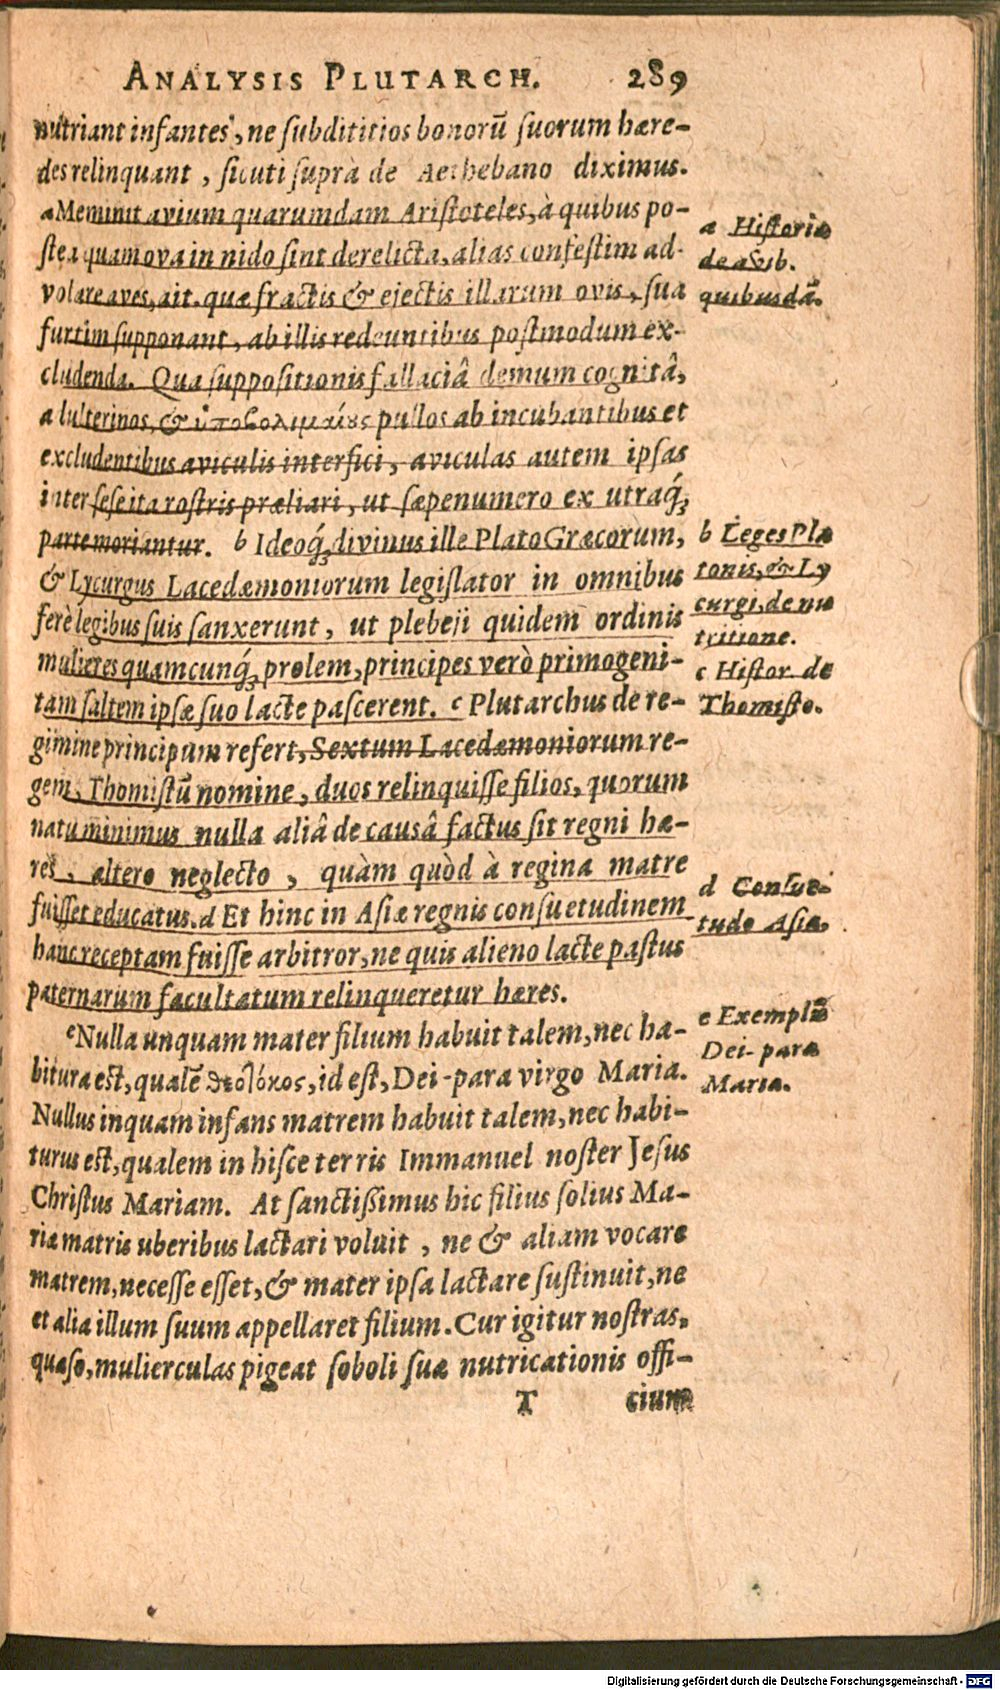 ANALYSIS PLUTARCH. 289
nutriant infantes, ne ſubdititios bonorū ſuorum hære-
des relinquant, ſicuti ſuprà de Aethebano diximus.
a Meminit avium quarumdam Ariſtoteles, à quibus po-
ſtea quam ova in nido ſint derelicta, alias confeſtim ad-
volare aves, ait, quæ fractis & ejectis illarum ovis, ſua
furtim ſupponant, ab illis redeuntibus poſtmodum ex-
cludenda. Qua ſuppoſitionis fallaciâ demum cognitâ,
adulterinos, & ὑποβολιμαίους pullos ab incubantibus et
excludentibus aviculis interfici, aviculas autem ipſas
inter ſeſe ita roſtris præliari, ut ſæpenumero ex utraq́;
parte moriantur. b Ideoq́; divinus ille Plato Græcorum,
& Lycurgus Lacedæmoniorum legiſlator in omnibus
ferè legibus ſuis ſanxerunt, ut plebeji quidem ordinis
mulieres quamcunq́; prolem, principes verò primogeni-
tam ſaltem ipſæ ſuo lacte paſcerent. c Plutarchus de re-
gimine principum refert, Sextum Lacedæmoniorum re-
gem, Thomiſtū nomine, duos relinquiſſe filios, quorum
natu minimus nulla aliâ de causâ factus ſit regni hæ-
res, altero neglecto, quàm quòd à regina matre
fuiſſet educatus. d Et hinc in Aſiæ regnis conſuetudinem
hanc receptam fuiſſe arbitror, ne quis alieno lacte paſtus
paternarum facultatum relinqueretur hæres.
e Nulla unquam mater filium habuit talem, nec ha-
bitura eſt, qualē θεοτόκος, id eſt, Dei-para virgo Maria.
Nullus inquam infans matrem habuit talem, nec habi-
turus eſt, qualem in hiſce terris Immanuel noſter Jeſus
Chriſtus Mariam. At ſanctiſſimus hic filius ſolius Ma-
riæ matris uberibus lactari voluit, ne & aliam vocare
matrem, neceſſe eſſet, & mater ipſa lactare ſuſtinuit, ne
et alia illum ſuum appellaret filium. Cur igitur noſtras,
quæſo, mulierculas pigeat ſoboli ſuæ nutricationis offi-
T cium
a Hiſtoria
de
quibusdā.
b Leges Pla
tonis, & Ly
curgi, de nu
tritione.
c Hiſtor. de
Thomiſto.
d Conſue-
tudo Aſiæ.
e Exemplū
Dei-paræ
Mariæ.
Digitalisierung gefördert durch die Deutsche Forschungsgemeinschaft - DFG